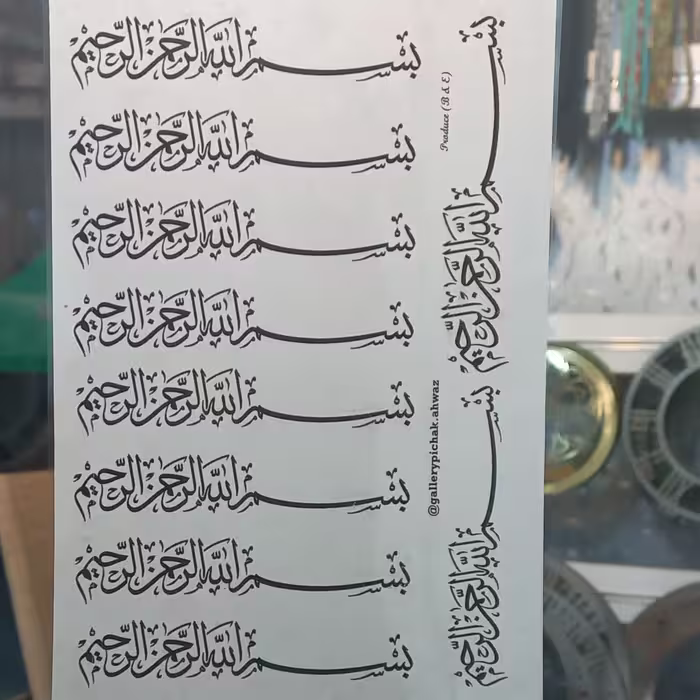 بسم الله الرحمن الرحيم
بسم الله الرحمن الرحيم
بسم الله الرحمن الرحيم
بسم الله الرحمن الرحيم
بسم الله الرحمن الرحيم
بسم الله الرحمن الرحيم
بسم الله الرحمن الرحيم
بسم الله الرحمن الرحيم
بسم الله الرحمن الرحيم
بسم الله الرحمن الرحيم
Produce (B & E)
@gallerypichak.ahwaz